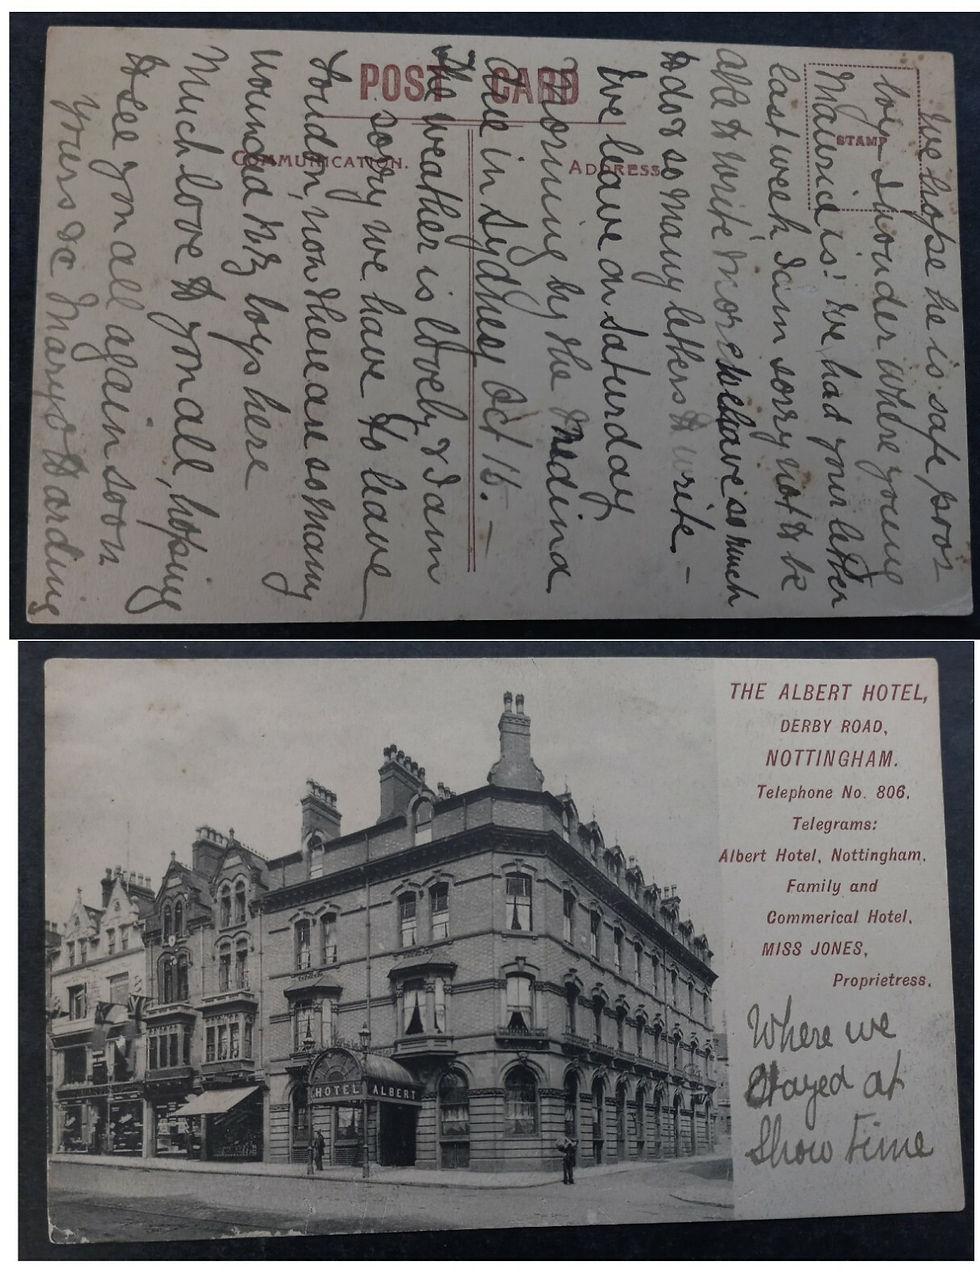 POST CARD
COMMUNICATION.
ADDRESS
STAMP
We hope he is safe poor
boy. I wonder where young
Maurice is! We had your letter
last week I am sorry not to be
able to write more we have so much
to do & so many letters to write. –
We leave on Saturday
Morning by the Medina
due in Sydney Oct 16. –
The weather is lovely & I am
sorry we have to leave
London, now there are so many
wounded NZ boys here
Much love to you all, hoping
to see you all again soon
Yours &c Harding
THE ALBERT HOTEL,
DERBY ROAD,
NOTTINGHAM.
Telephone No. 806.
Telegrams:
Albert Hotel, Nottingham.
Family and
Commerical Hotel.
MISS JONES,
Proprietress.
Where we
Stayed at
Show time
HOTEL ALBERT